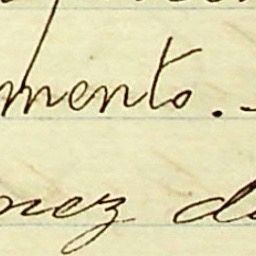 mento. -
nez do